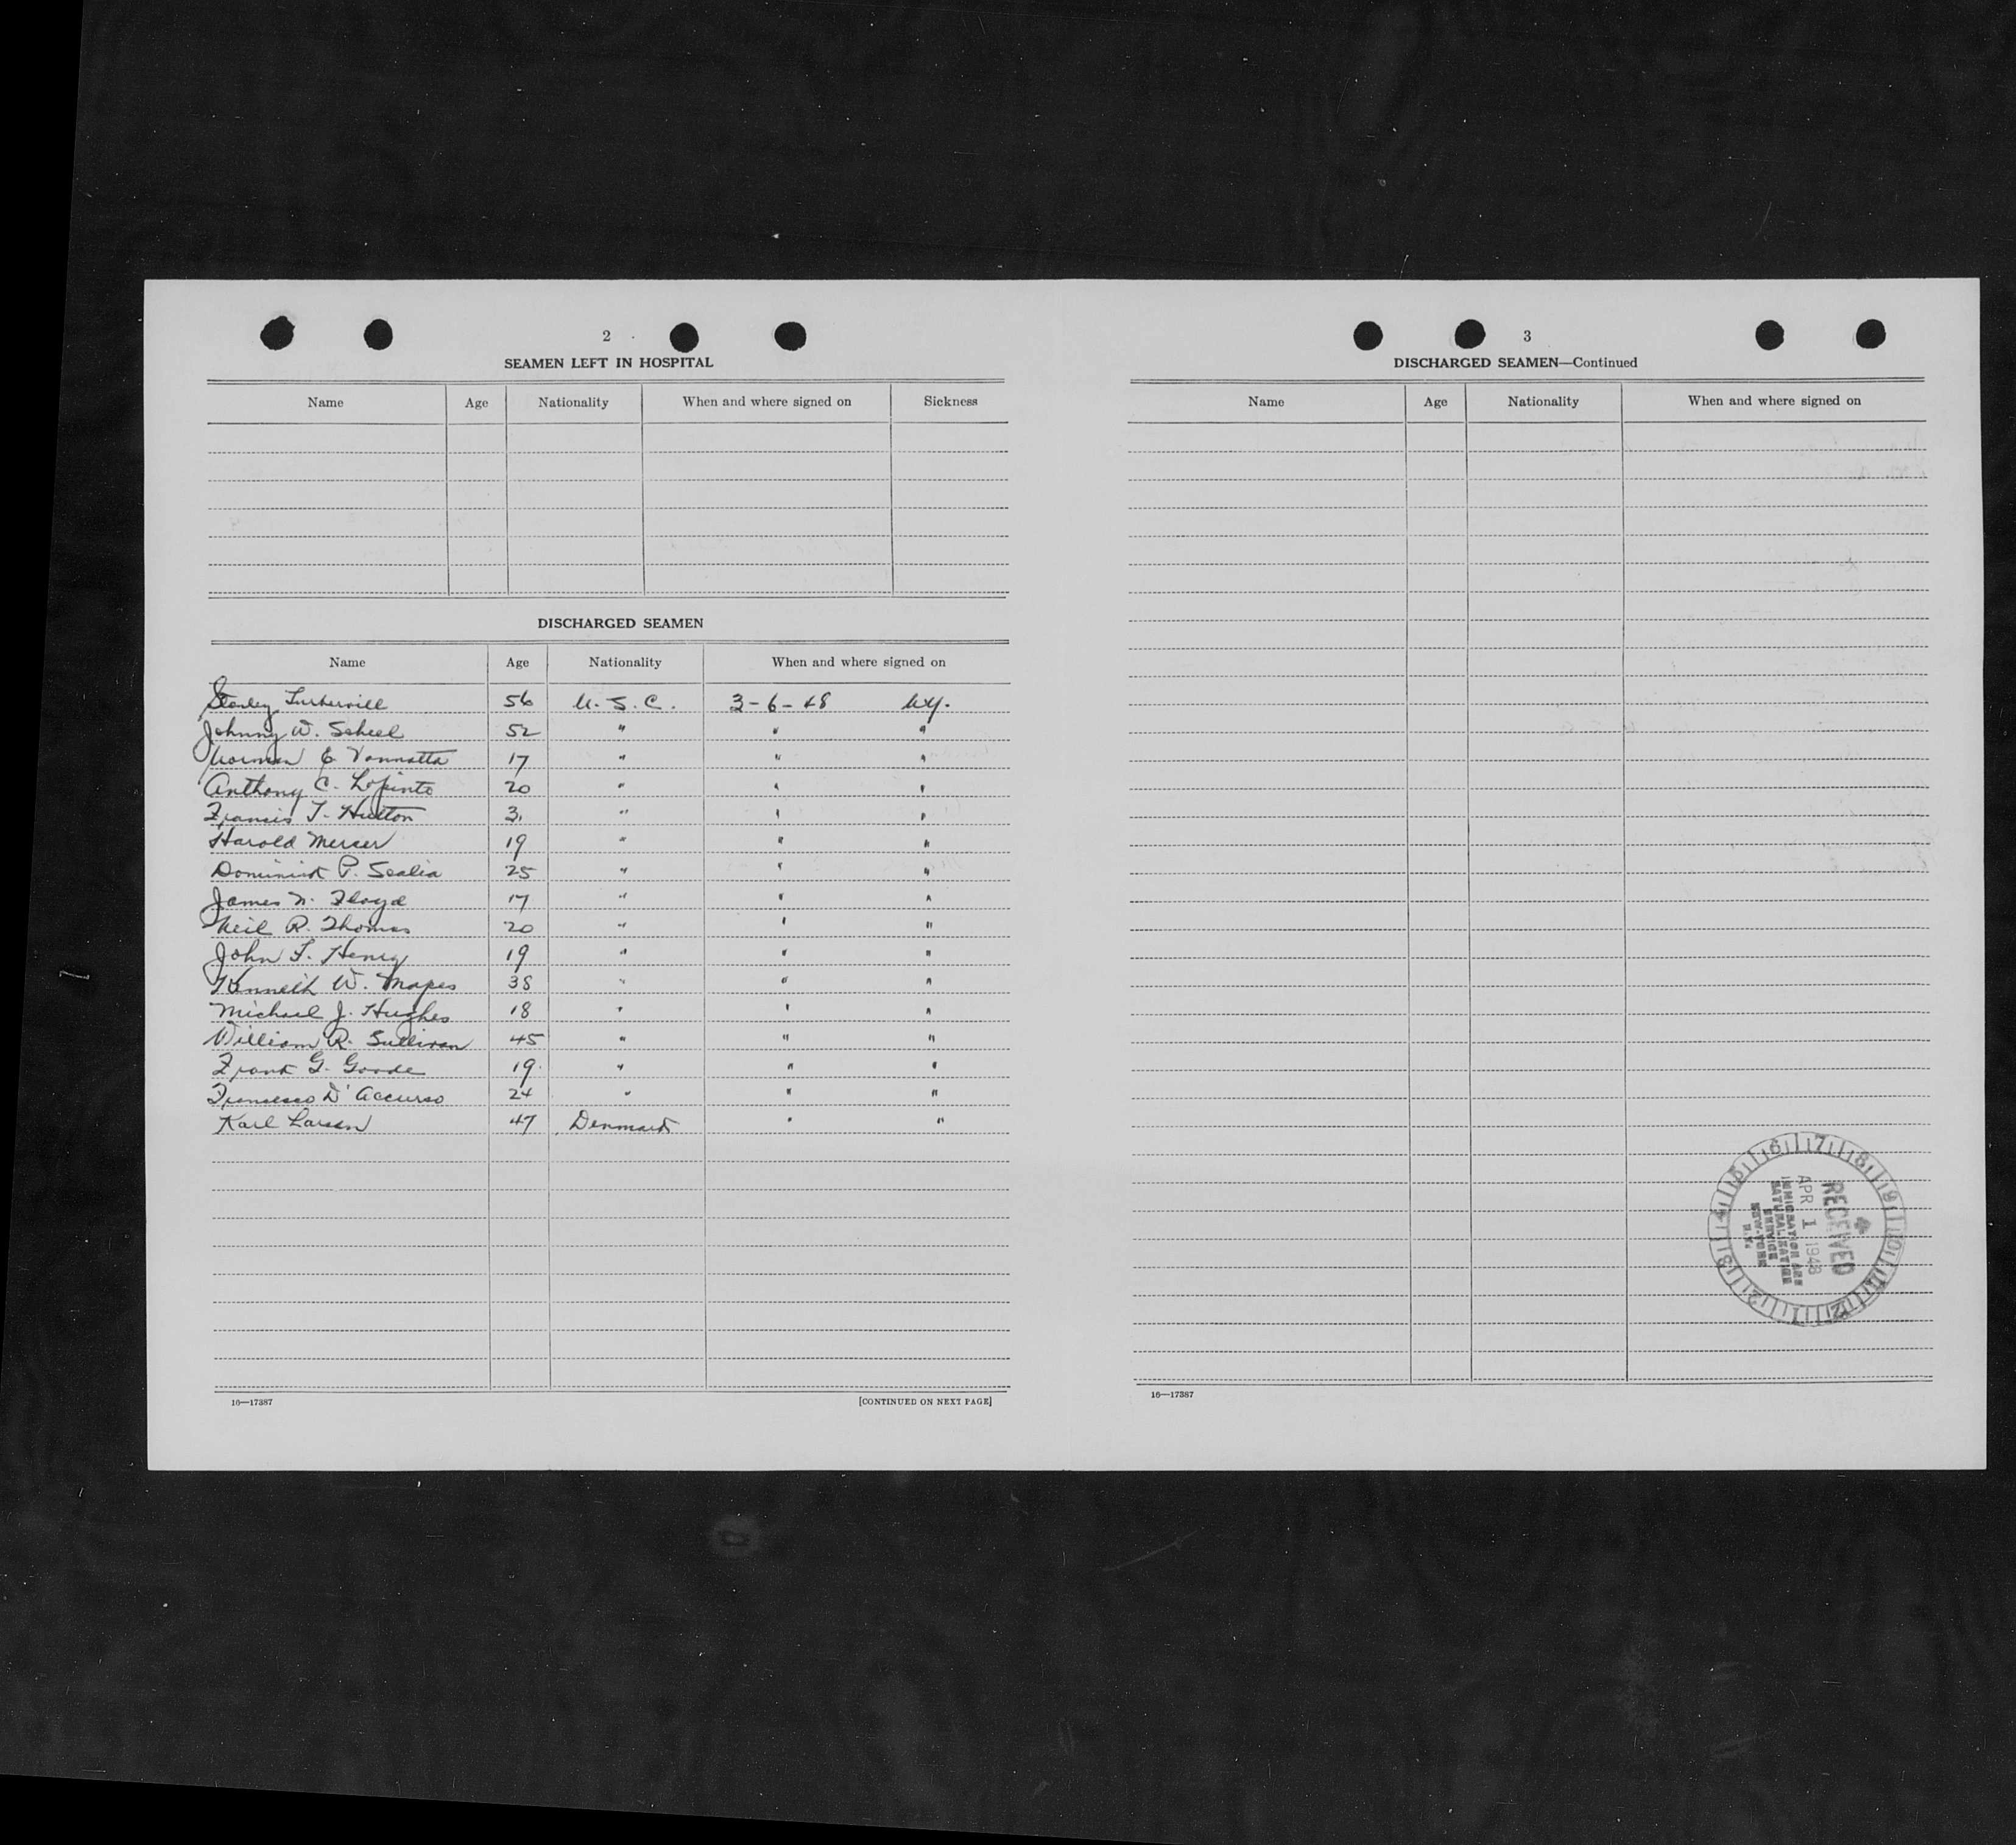 2
SEAMEN LEFT IN HOSPITAL
Name Age Nationality When and where signed on Sickness
DISCHARGED SEAMEN
Name Age Nationality When and where signed on
Stanley 56 U.S.C. 3-6-48 NY.
Johnny W. Scheel 52 " " "
Norman E Vannatta 17 " " "
Anthony C. Lopinto 20 " " "
Francis T. Hutton 31 " " "
Harold Mercer 19 " " "
Dominick P. Scalia 25 " " "
James N. Floyd 17 " " "
Neil R. Thomas 20 " " "
John F. Henry 19 " " "
Kenneth W. Mapes 38 " " "
Michael J. Hughes 18 " " "
William R. Sullivan 45 " " "
Frank G. Goode 19 " " "
Francesco D'Accurso 24 " " "
Karl Larsen 47 Denmark " "
16—17387 [CONTINUED ON NEXT PAGE]
3
DISCHARGED SEAMEN—Continued
Name Age Nationality When and where signed on
RECEIVED
APR 1 1948
IMMIGRATION AND
NATURALIZATION
SERVICE
NEW YORK
N.Y.
1 2 3 4 5 6 7 8 9 10 11 12
16—17387